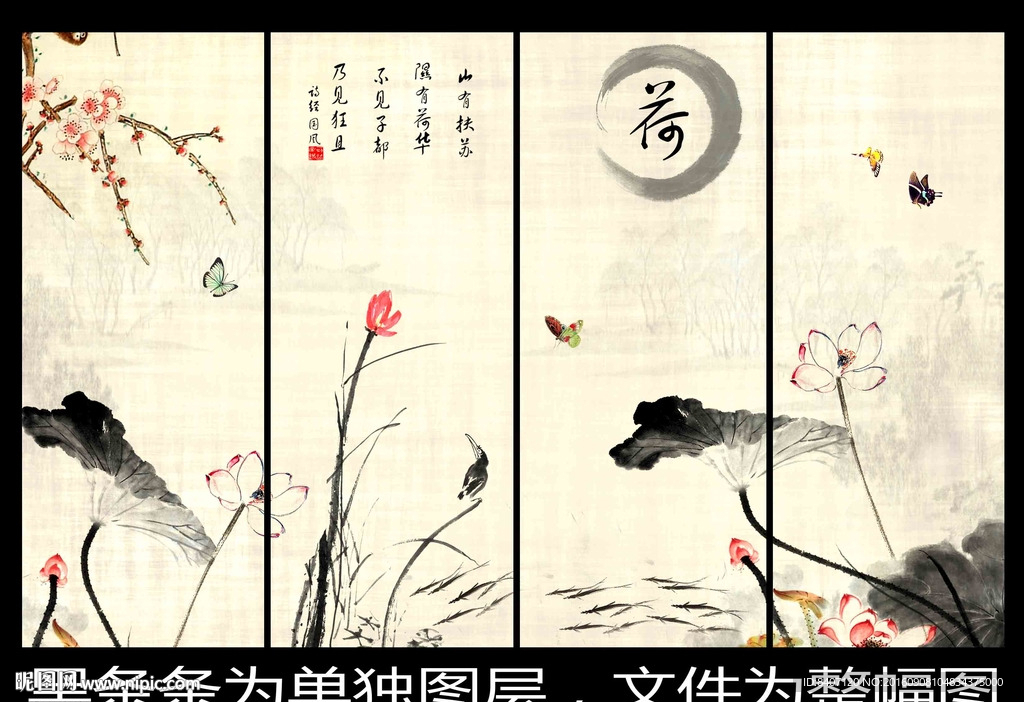 山有扶苏
隰有荷华
不见子都
乃见狂且
诗经国风
荷
黑条条为单独图层，文件为整幅图
昵图网 www.nipic.com